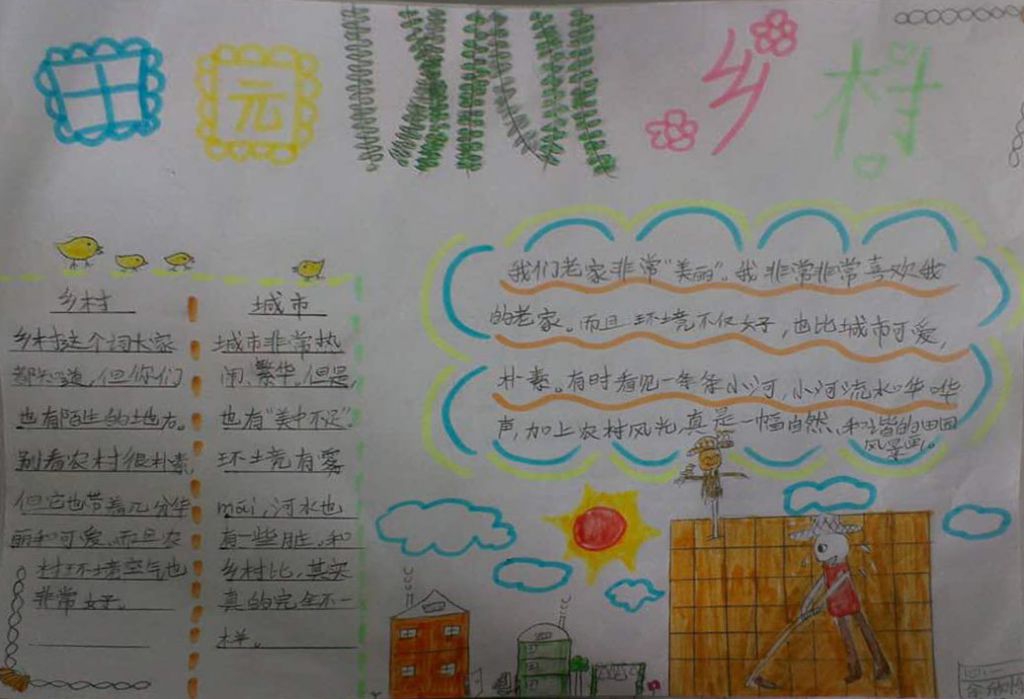 田园
乡村
乡村
乡村这个词大家
都知道,但你们
也有陌生的地方。
别看农村很朴素,
但它也带着几分华
丽和可爱。而且农
村环境空气也
非常好。
城市
城市非常热
闹、繁华。但是,
也有“美中不足”
环境有雾
mái,河水也
有一些脏。和
乡村比,其实
真的完全不一
样。
我们老家非常“美丽”。我非常非常喜欢我
的老家。而且环境不仅好,也比城市可爱,
朴素。有时看见一条条小河,小河流水哗哗
声,加上农村风光,真是一幅自然、和谐的田园
风景画。